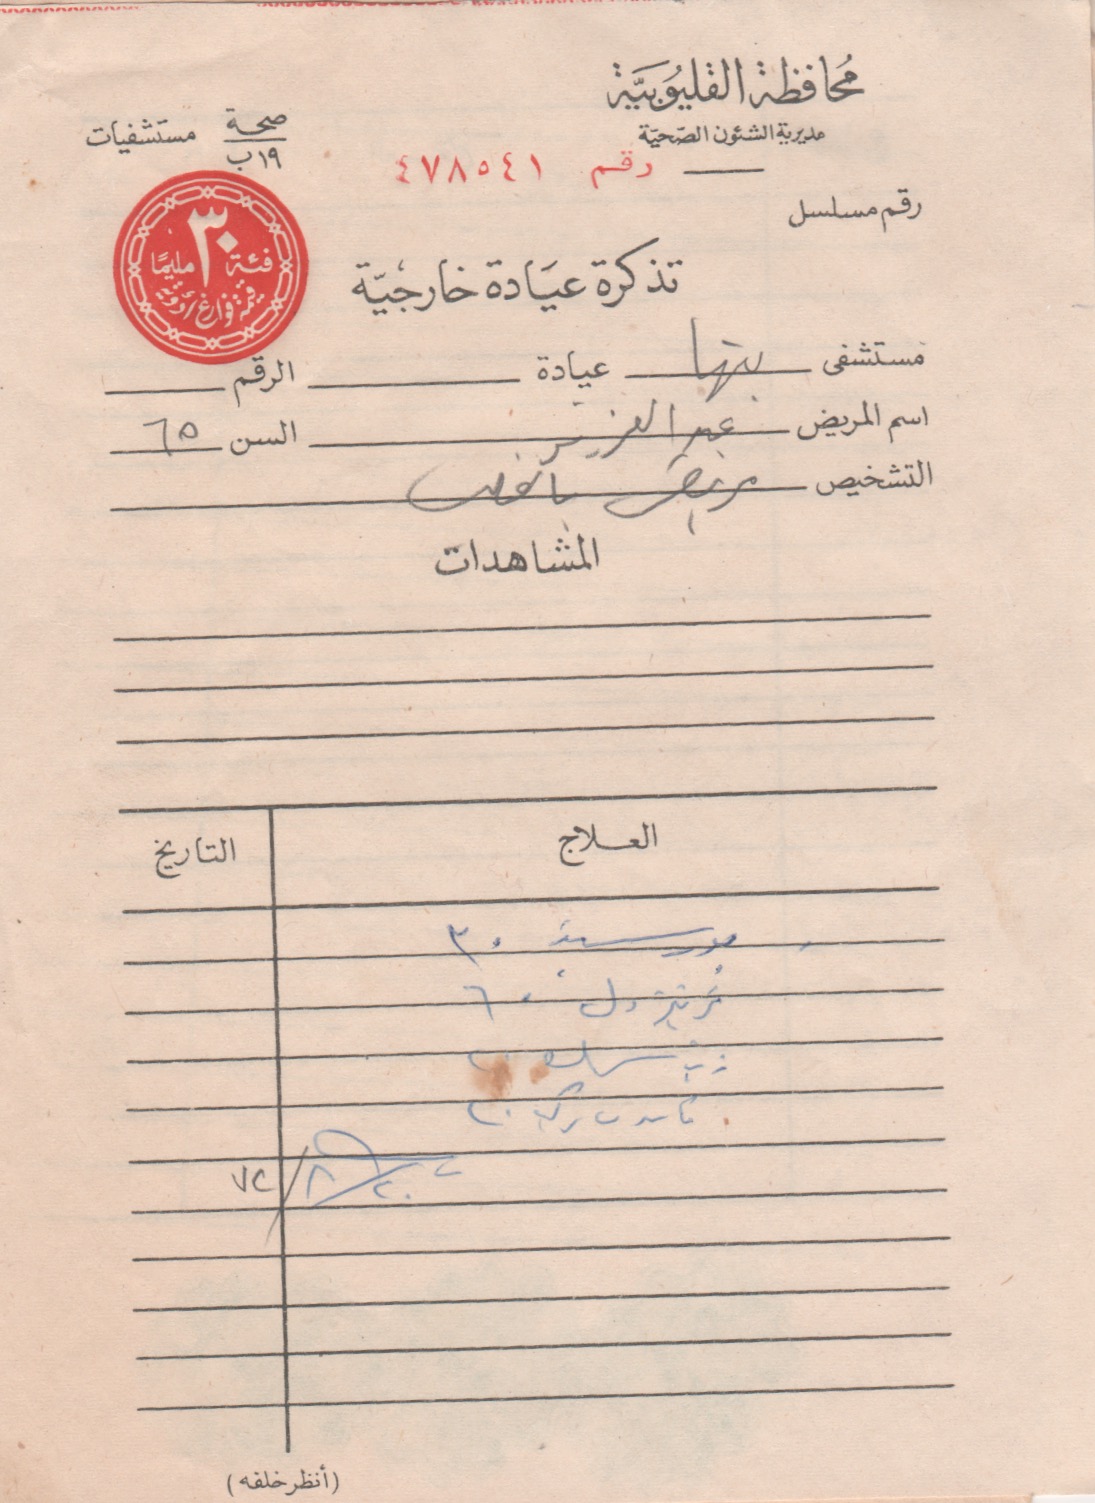 محافظة القليوبية
مديرية الشئون الصحية
صحة
١٩ ب
مستشفيات
رقم ٤٧٨٥٤١
رقم مسلسل
فئة ٣٠ مليمًا
تذكرة عيادة خارجية
مستشفى بنها عيادة الرقم
اسم المريض عبد العزيز السن ٦٥
التشخيص مريض بالقلب
المشاهدات
العلاج التاريخ
٣٠
٦٠
٢٠
٢٠
٢٠/٨/٧٢
(أنظر خلفه)